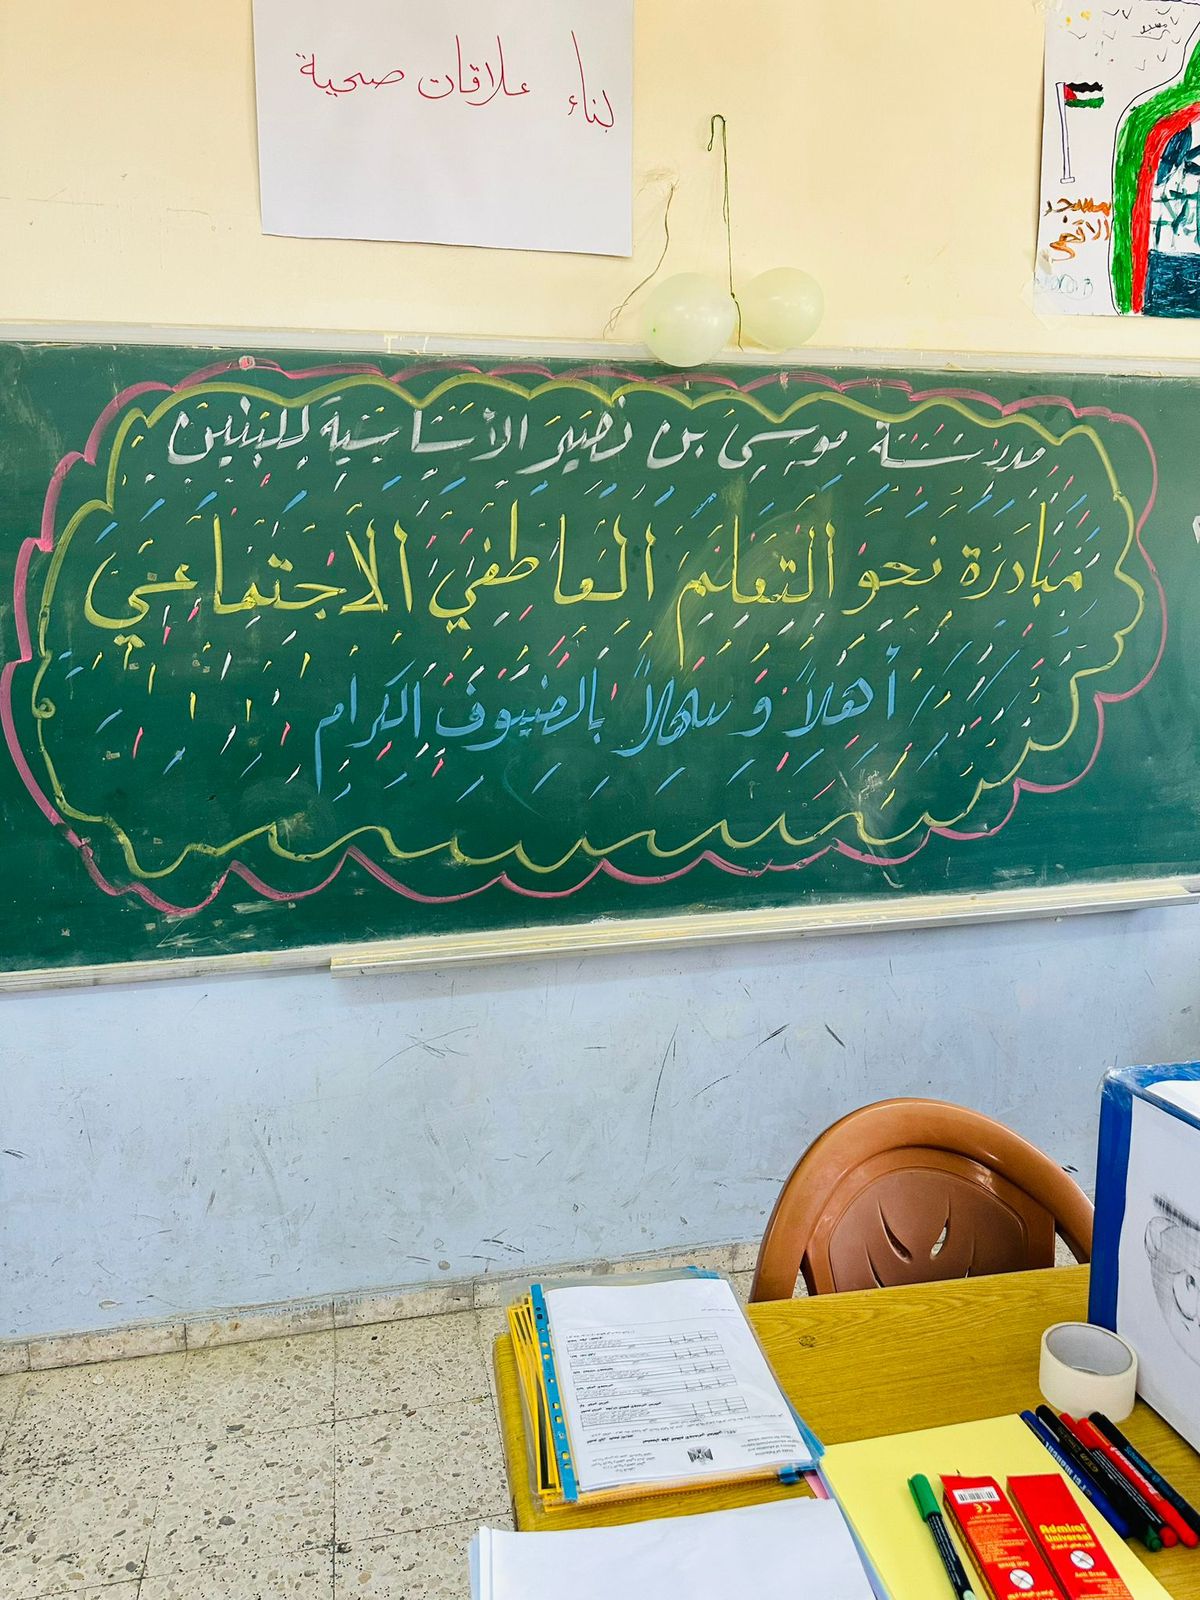 بناء علاقات صحية
مسجد
الاقصى
مدرسة موسى بن نصير الأساسية للبنين
مبادرة نحو التعلم العاطفي الاجتماعي
أهلاً و سهلاً بالضيوف الكرام
Admiral
Universal
Anti Break